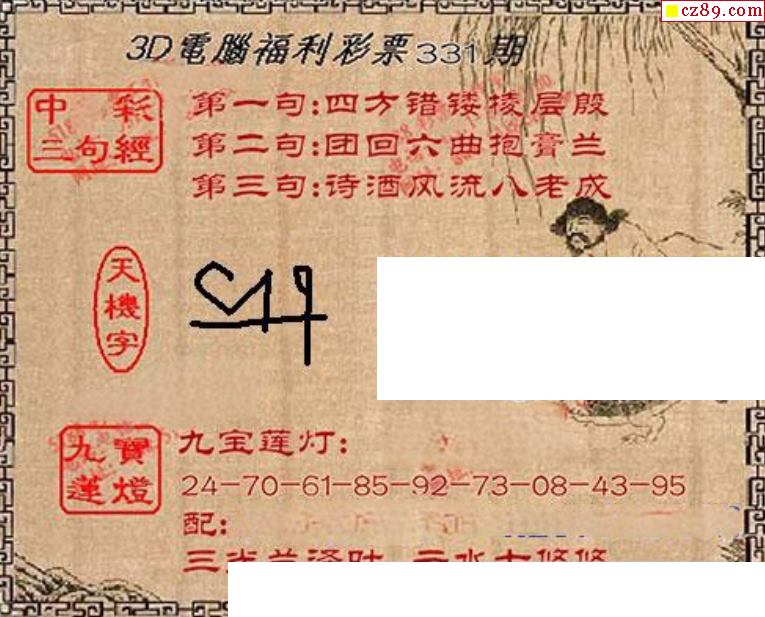 cz89.com
3D電腦福利彩票331期
中彩
三句經
第一句:四方错镂棱层殷
第二句:团回六曲抱膏兰
第三句:诗酒风流八老成
天機字
九寶蓮燈
九宝莲灯:
24-70-61-85-92-73-08-43-95
配: